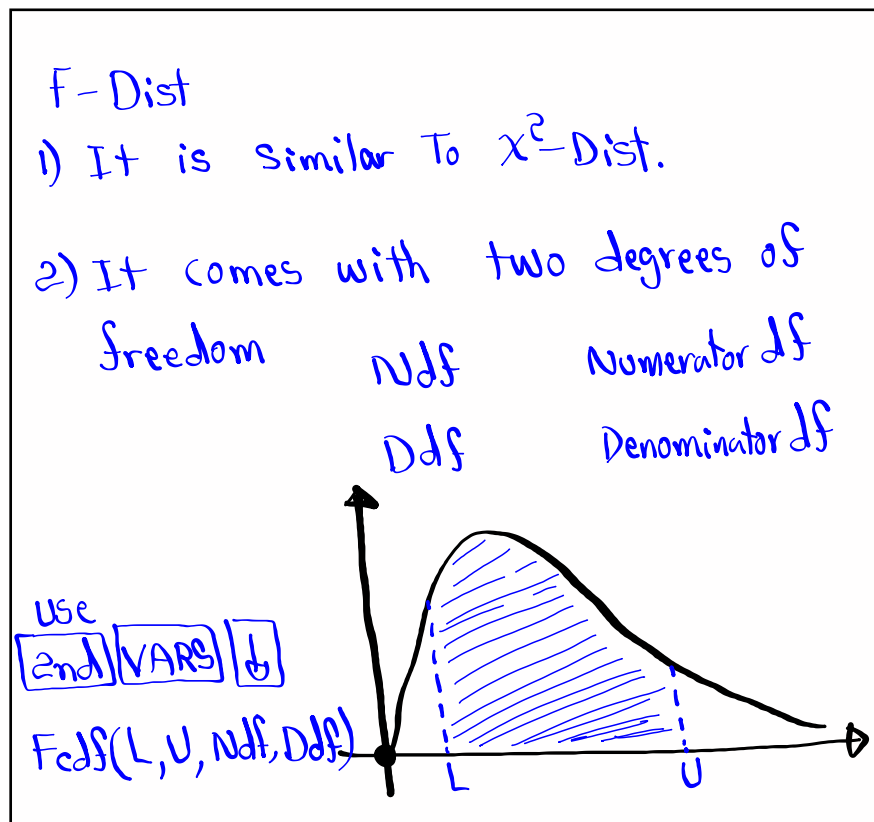 F-Dist
1) It is similar To χ²-Dist.
2) It comes with two degrees of
freedom Ndf Numerator df
Ddf Denominator df
use
2nd VARS ↓
Fcdf(L,U,Ndf,Ddf)
L U